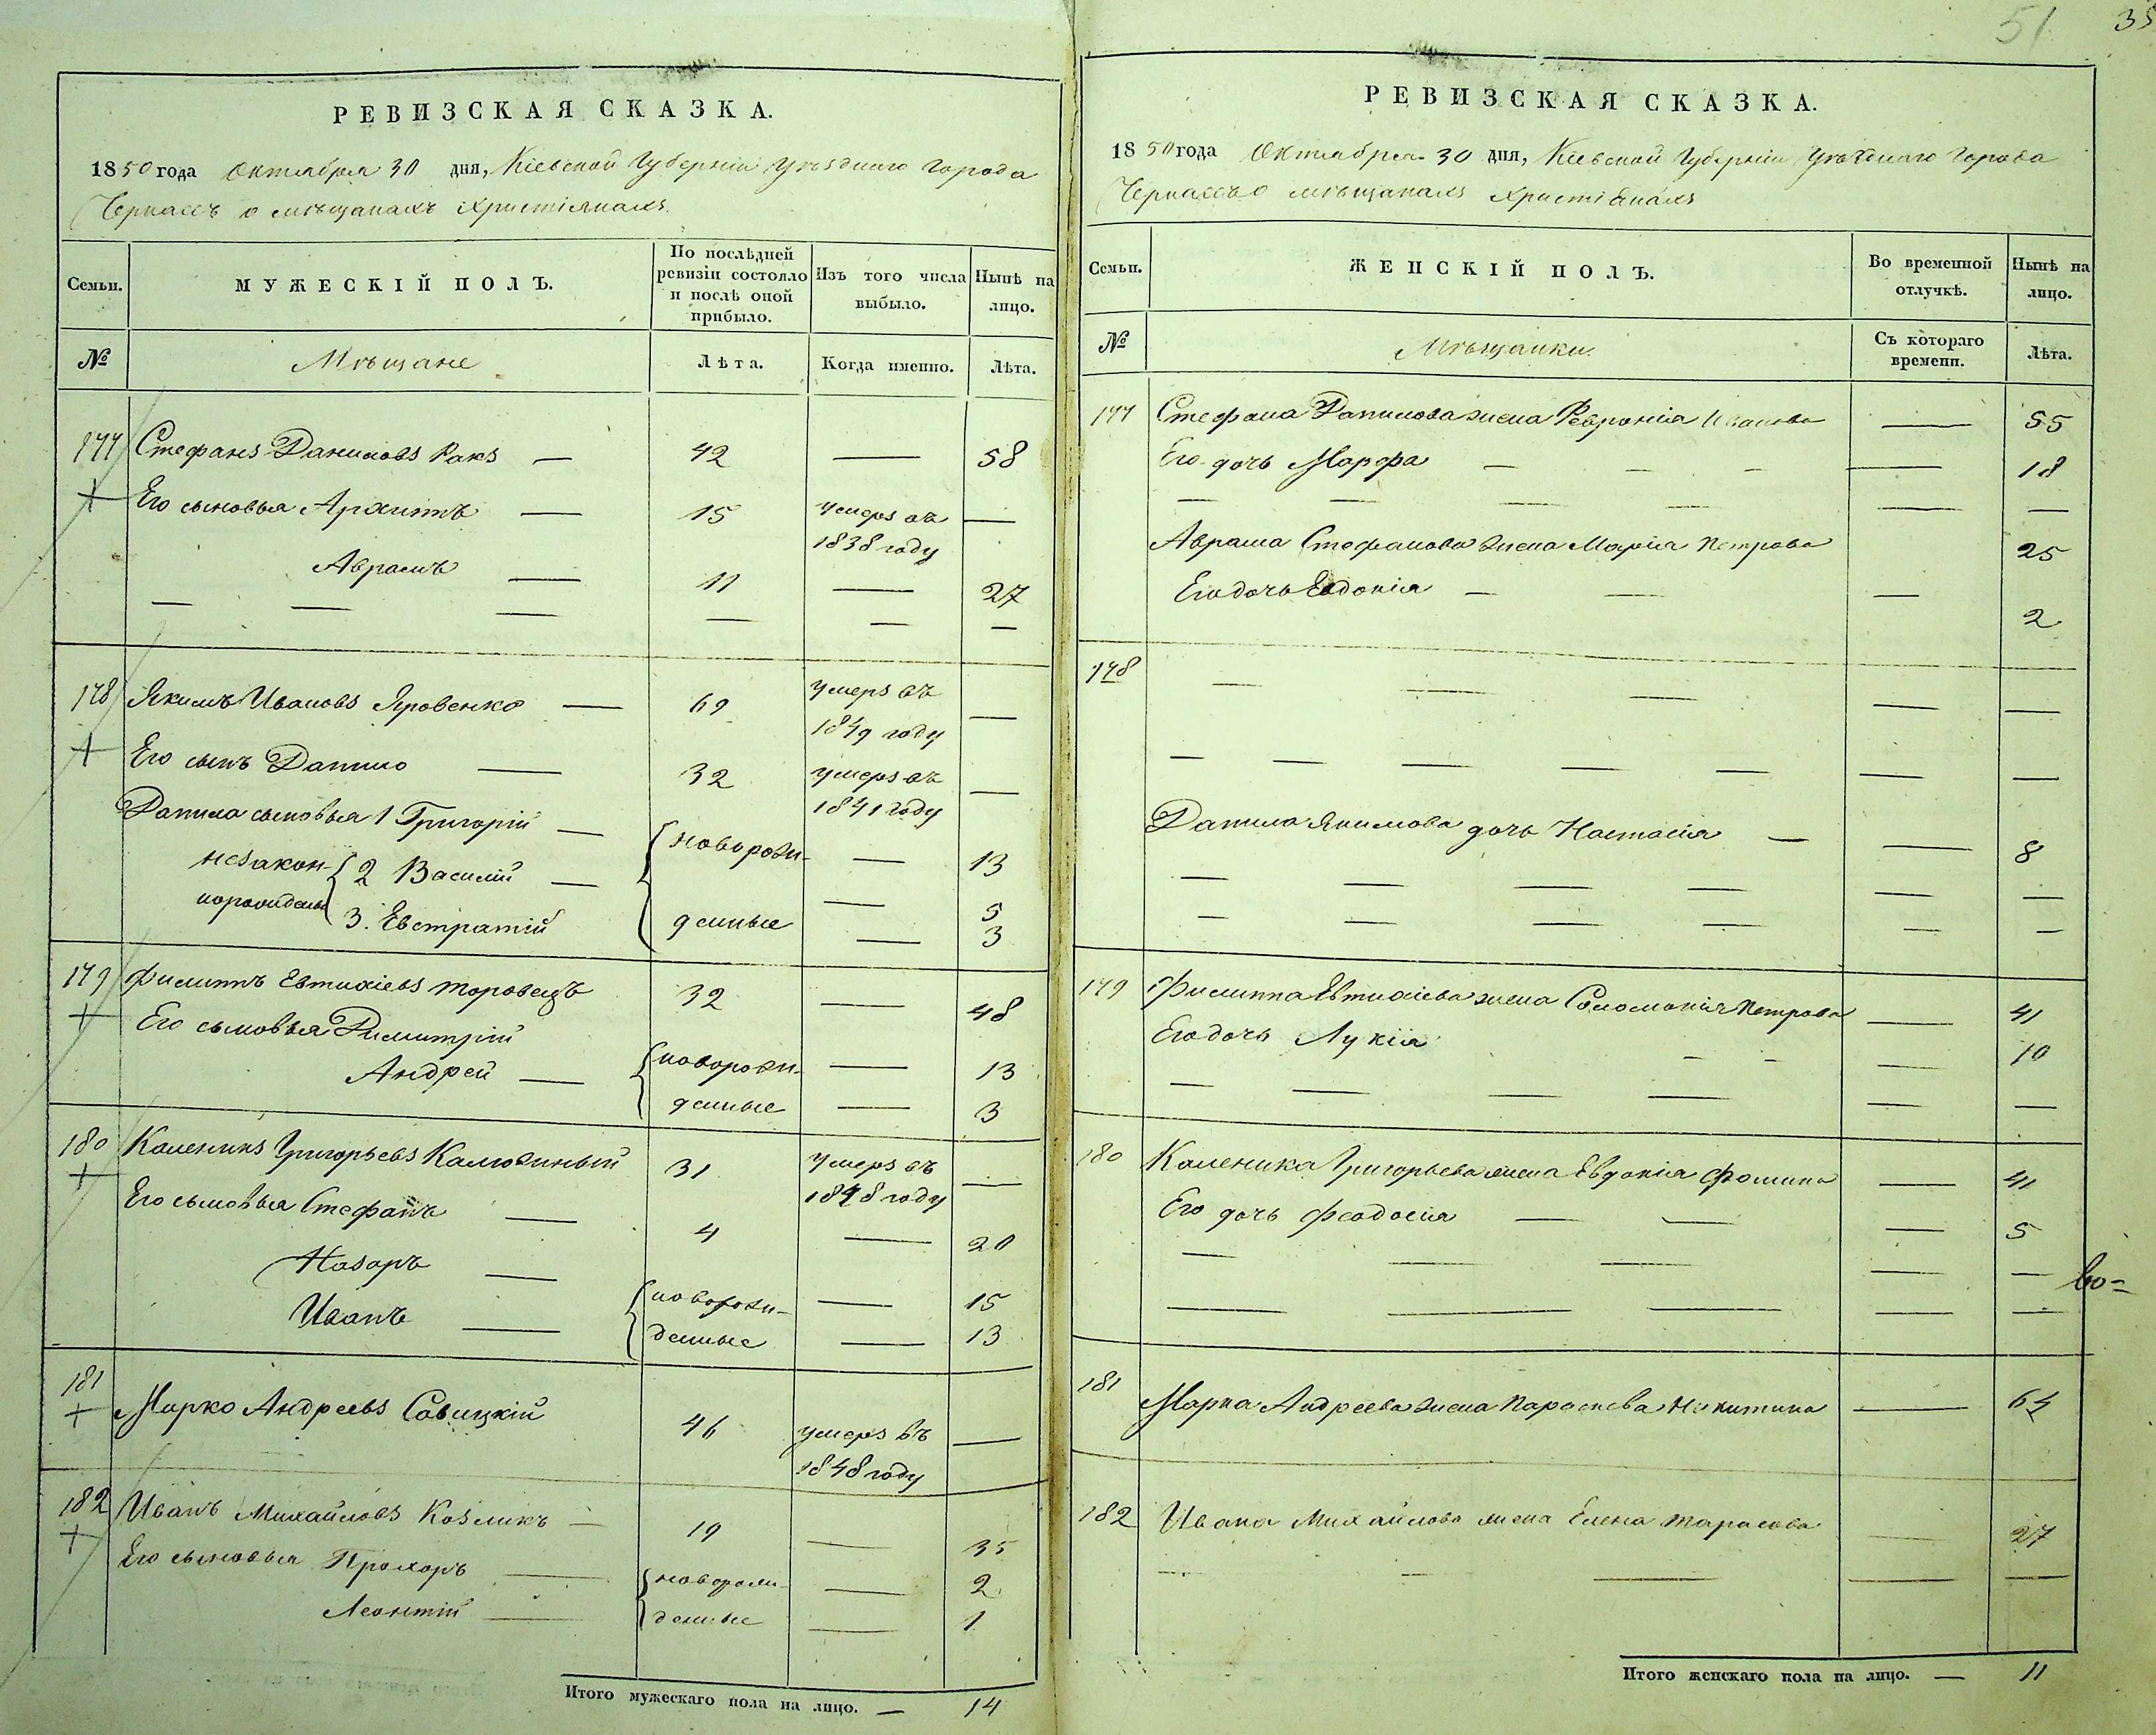 51 35
РЕВИЗСКАЯ СКАЗКА.
1850 года Октября 30 дня, Кіевской Губерніи Уѣзднаго Города
Черкасъ о мѣщанахъ Християнахъ
Семьи. МУЖЕСКІЙ ПОЛЪ. По послѣдней ревизіи состояло и послѣ оной прибыло. Изъ того числа выбыло. Нынѣ на лицо.
№ Мѣщане Лѣта. Когда именно. Лѣта.
177 Стефанъ Даниловъ Ракъ — 42 — 58
Его сыновья Архиппъ — 15 умеръ въ 1838 году —
Аврамъ — 11 — 27
— — — — — —
178 Якимъ Ивановъ Яровенко — 69 умеръ въ 1849 году —
Его сынъ Данило — 32 умеръ въ 1841 году —
Данила сыновья 1 Григорій — новорож- — 13
незакон- 2 Василій — — 5
норожденные 3. Евстратій денные — 3
179 Филиппъ Евтихіевъ Торовецъ 32 — 48
Его сыновья Димитрій новорож- — 13
Андрей — денные — 3
180 Каленикъ Григорьевъ Калюжный 31 умеръ въ 1848 году —
Его сыновья Стефанъ — 4 — 20
Назаръ — новорож- — 15
Иванъ — денные — 13
181 Марко Андреевъ Савицкій 46 умеръ въ 1848 году —
182 Иванъ Михайловъ Козликъ — 19 — 35
Его сыновья Прохоръ — новорож- — 2
Леонтій — денные — 1
Итого мужескаго пола на лицо. — 14
РЕВИЗСКАЯ СКАЗКА.
1850 года Октября 30 дня, Кіевской Губерніи Уѣзднаго Города
Черкасъ о мѣщанахъ Християнахъ
Семьи. ЖЕНСКІЙ ПОЛЪ. Во временной отлучкѣ. Нынѣ на лицо.
№ Мѣщанки. Съ котораго времени. Лѣта.
177 Стефана Данилова жена Февронія Иванова — 55
Его дочь Марфа — — — — 18
— — — — — —
Аврама Стефанова жена Марія Петрова 25
Его дочь Евдокія — — — 2
178 — — — — —
— — — — — — —
Данила Якимова дочь Настасія — — 8
— — — — — —
— — — — — —
179 Филиппа Евтихіева жена Соломонія Петрова — 41
Его дочь Лукія — — — 10
— — — — — —
180 Каленика Григорьева жена Евдокія Фомина — 41
Его дочь Феодосія — — — 5
— — — — —
— — — — —
во-
181 Марка Андреева жена Параскева Никитина — 64
182 Ивана Михайлова жена Елена Тарасова — 27
— — — — —
Итого женскаго пола на лицо. — 11